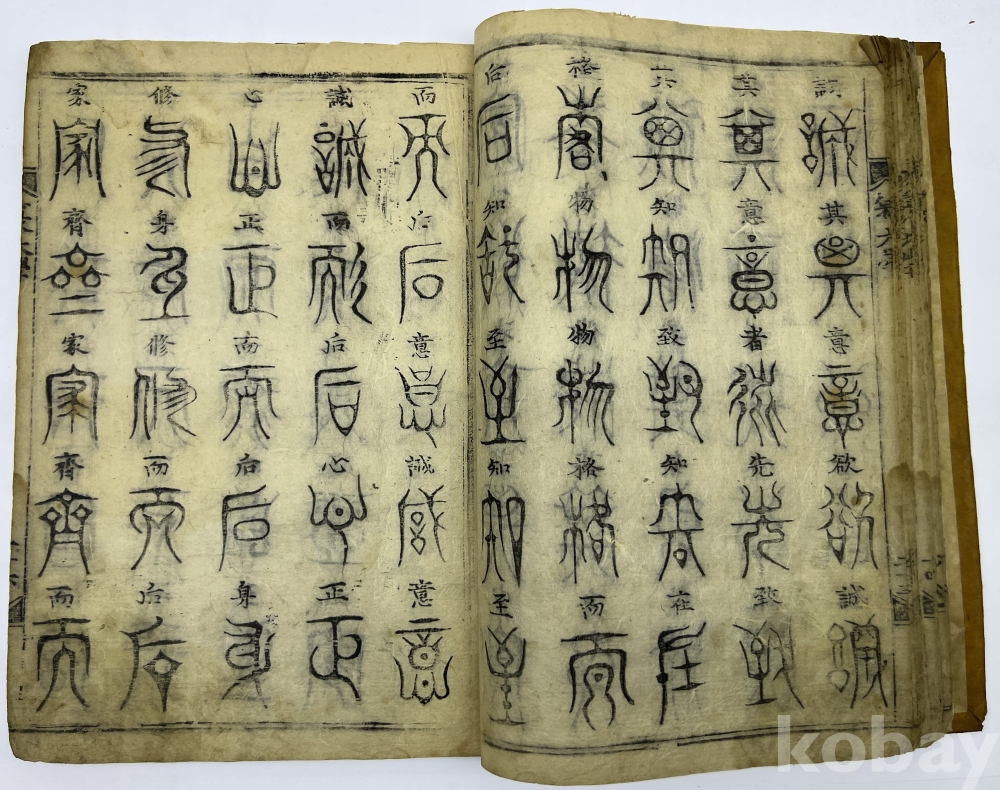 誠其意欲誠
其意者先致
其知致知在
格物物格而
后知至知至
而后意誠意
誠而后心正
心正而后身
修身修而后
家齊家齊而
kobay